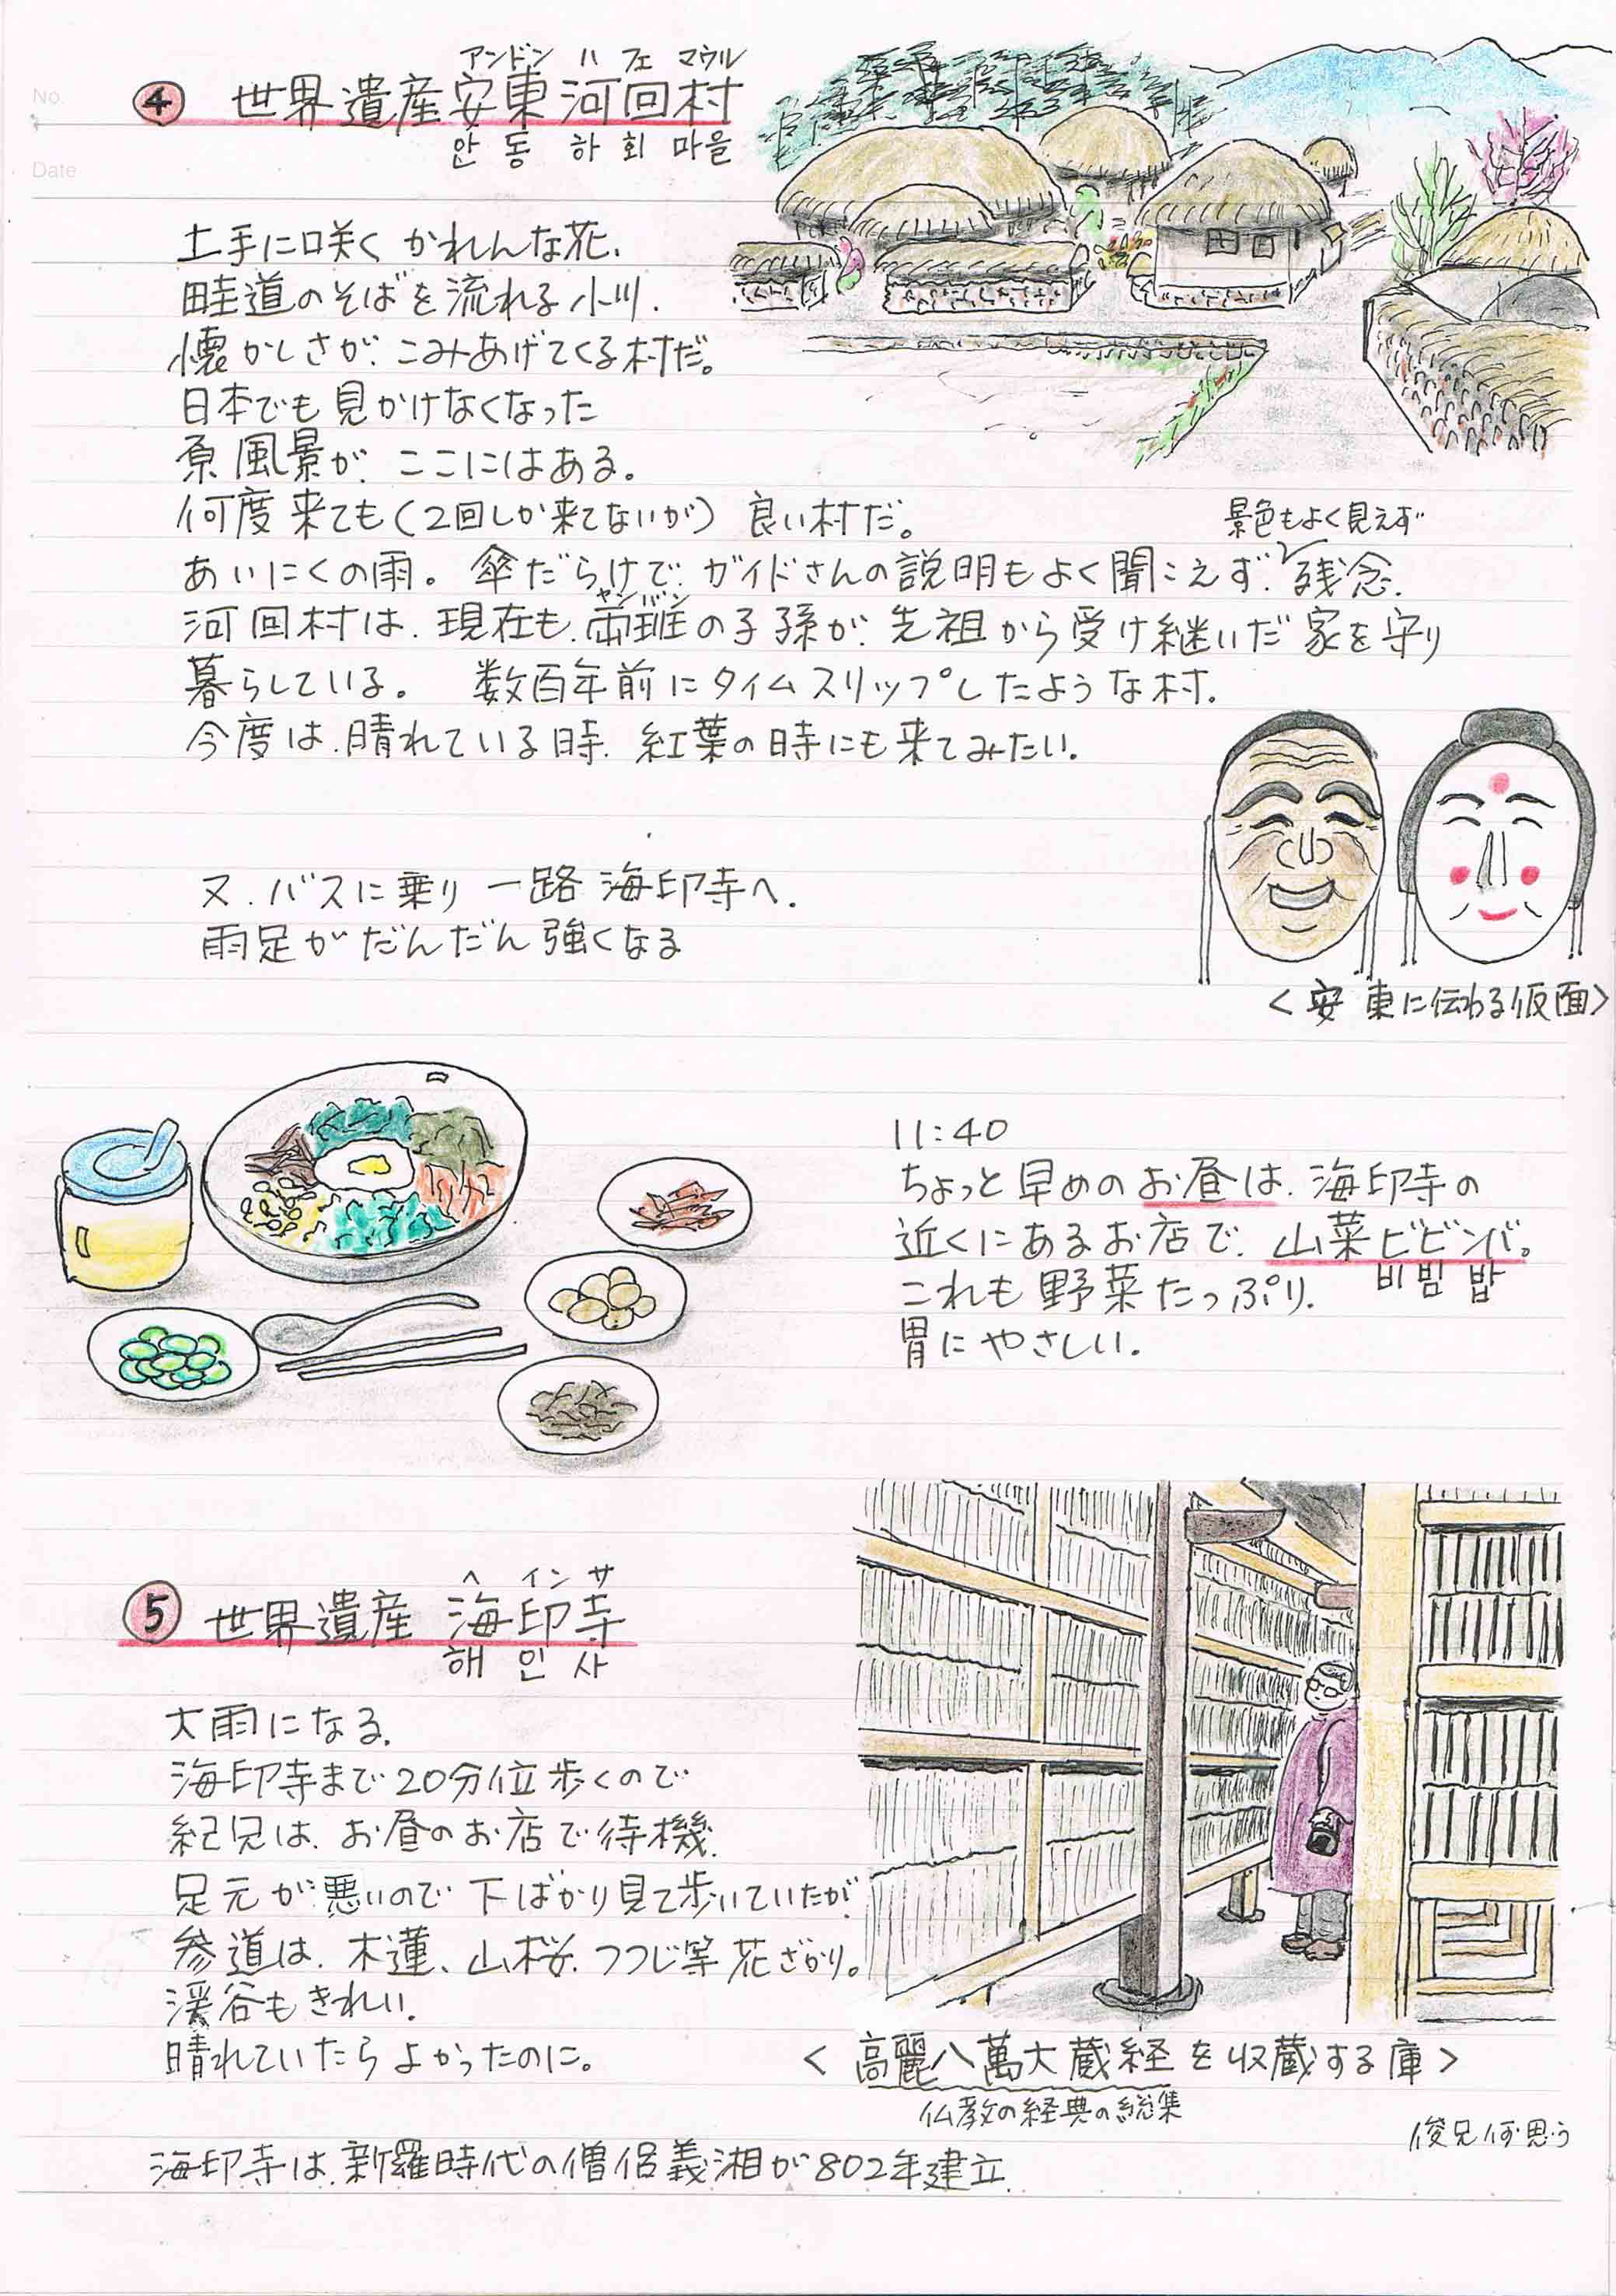 No.
Date
アンドン ハ フェ マウル
④ 世界遺産安東河回村
안동 하회 마을
土手に咲く かれんな花、
畦道のそばを流れる小川.
懐かしさが、こみあげてくる村だ。
日本でも見かけなくなった
原風景が、ここにはある。
何度来ても(2回しか来てないが) 良い村だ。
景色もよく見えず
あいにくの雨。傘だらけで、ガイドさんの説明もよく聞こえず、残念.
ヤンバン
河回村は、現在も、両班の子孫が、先祖から受け継いだ家を守り
暮らしている。 数百年前にタイムスリップしたような村.
今度は、晴れている時、紅葉の時にも来てみたい.
又、バスに乗り 一路 海印寺へ.
雨足がだんだん強くなる
<安東に伝わる仮面>
11:40
ちょっと早めのお昼は、海印寺の
近くにあるお店で、山菜ビビンバ。
비빔밥
これも野菜たっぷり.
胃にやさしい.
ヘ イン サ
⑤ 世界遺産 海印寺
해 인 사
大雨になる.
海印寺まで20分位歩くので
紀兄は、お昼のお店で待機.
足元が悪いので 下ばかり見て歩いていたが、
参道は、木蓮、山桜、つつじ等 花ざかり。
渓谷もきれい.
晴れていたらよかったのに。
<高麗八萬大蔵経を収蔵する庫>
仏教の経典の総集
俊兄何思う
海印寺は、新羅時代の僧侶義湘が802年建立.